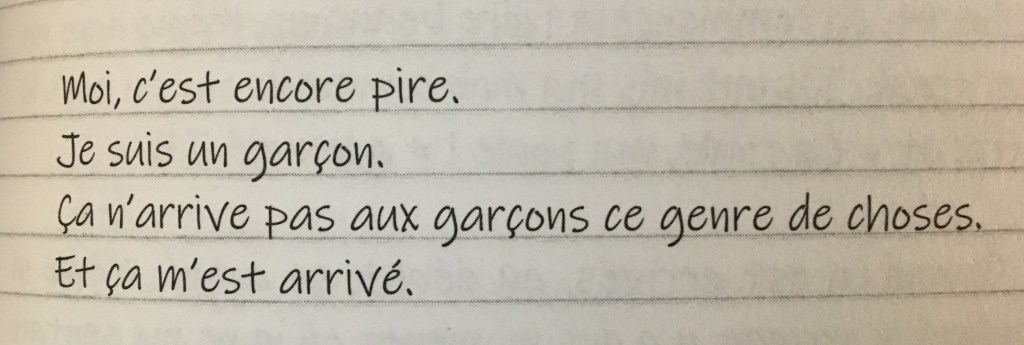 Moi, c'est encore pire.
Je suis un garçon.
Ça n'arrive pas aux garçons ce genre de choses.
Et ça m'est arrivé.